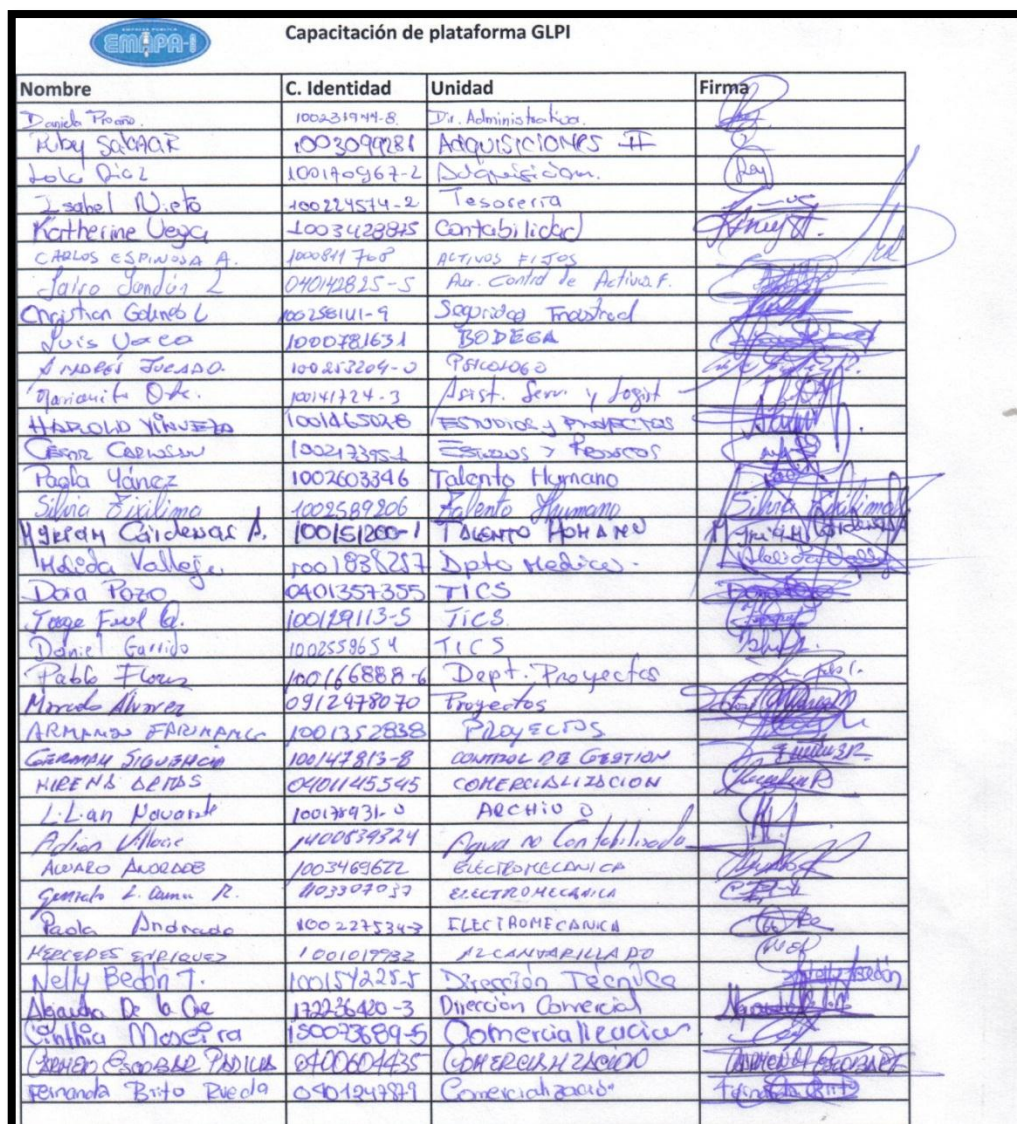 EMAPA-I
Capacitación de plataforma GLPI
Nombre C. Identidad Unidad Firma
Daniela Proaño. 100231944-8. Dir. Administrativa.
Ruby Salazar 1003099281 Adquisiciones II
Lola Díaz 100170967-2 Adquisición.
Isabel Nieto 100224574-2 Tesorería
Katherine Vega 1003428815 Contabilidad
CARLOS ESPINOSA A. 1000811768 ACTIVOS FIJOS
Jairo 040142825-5 Aux. Control de Activos F.
Christian L 100256141-9 Seguridad Industrial
Luis Vaca 1000781631 BODEGA
ANDRÉS JURADO. 100253209-0 PSICOLOGO
Marianita 100141724-3 Asist. Serv. y Logist
HAROLD VINUEZA 1001465028 ESTUDIOS y PROYECTOS
César 100217395-1 Estudios y Proyectos
Paola Yánez 1002603346 Talento Humano
Silvia Tixilima 1002589206 Talento Humano Silvia Tixilima
Myriam Cárdenas A. 100151200-1 TALENTO HUMANO
Vallejo 1001838257 Dpto Medico.
Dora Pozo 0401357355 TICS
Jorge 100129113-5 TICS
Daniel Garrido 1002559654 TICS
Pablo Flores 100166888-6 Dept. Proyectos
Marcelo Alvarez 0912978070 Proyectos
ARMANDO 1001352838 PROYECTOS
GERMAN SIGUENCIA 100147813-8 CONTROL DE GESTION
0401145545 COMERCIALIZACION
Lilian Navarrete 100178931-0 ARCHIVO
Adrian 1400639324 Agua no Contabilizada
ALVARO ANDRADE 1003469622 ELECTROMECANICA
Gonzalo L. R. 1103307037 ELECTROMECANICA
Paola Andrade 100227534-3 ELECTROMECANICA
MERCEDES ENRIQUEZ 1001019932 ALCANTARILLADO
Nelly Bedón T. 100154225-5 Dirección Técnica Nelly Bedón
Alejandra De la Cruz 172236420-3 Dirección Comercial
Cinthia Moreira 130073689-5 Comercialización
CARMEN ESCOBAR PADILLA 0400604435 COMERCIALIZACIÓN
Fernanda Brito Rueda 0401247879 Comercialización Fernanda Brito